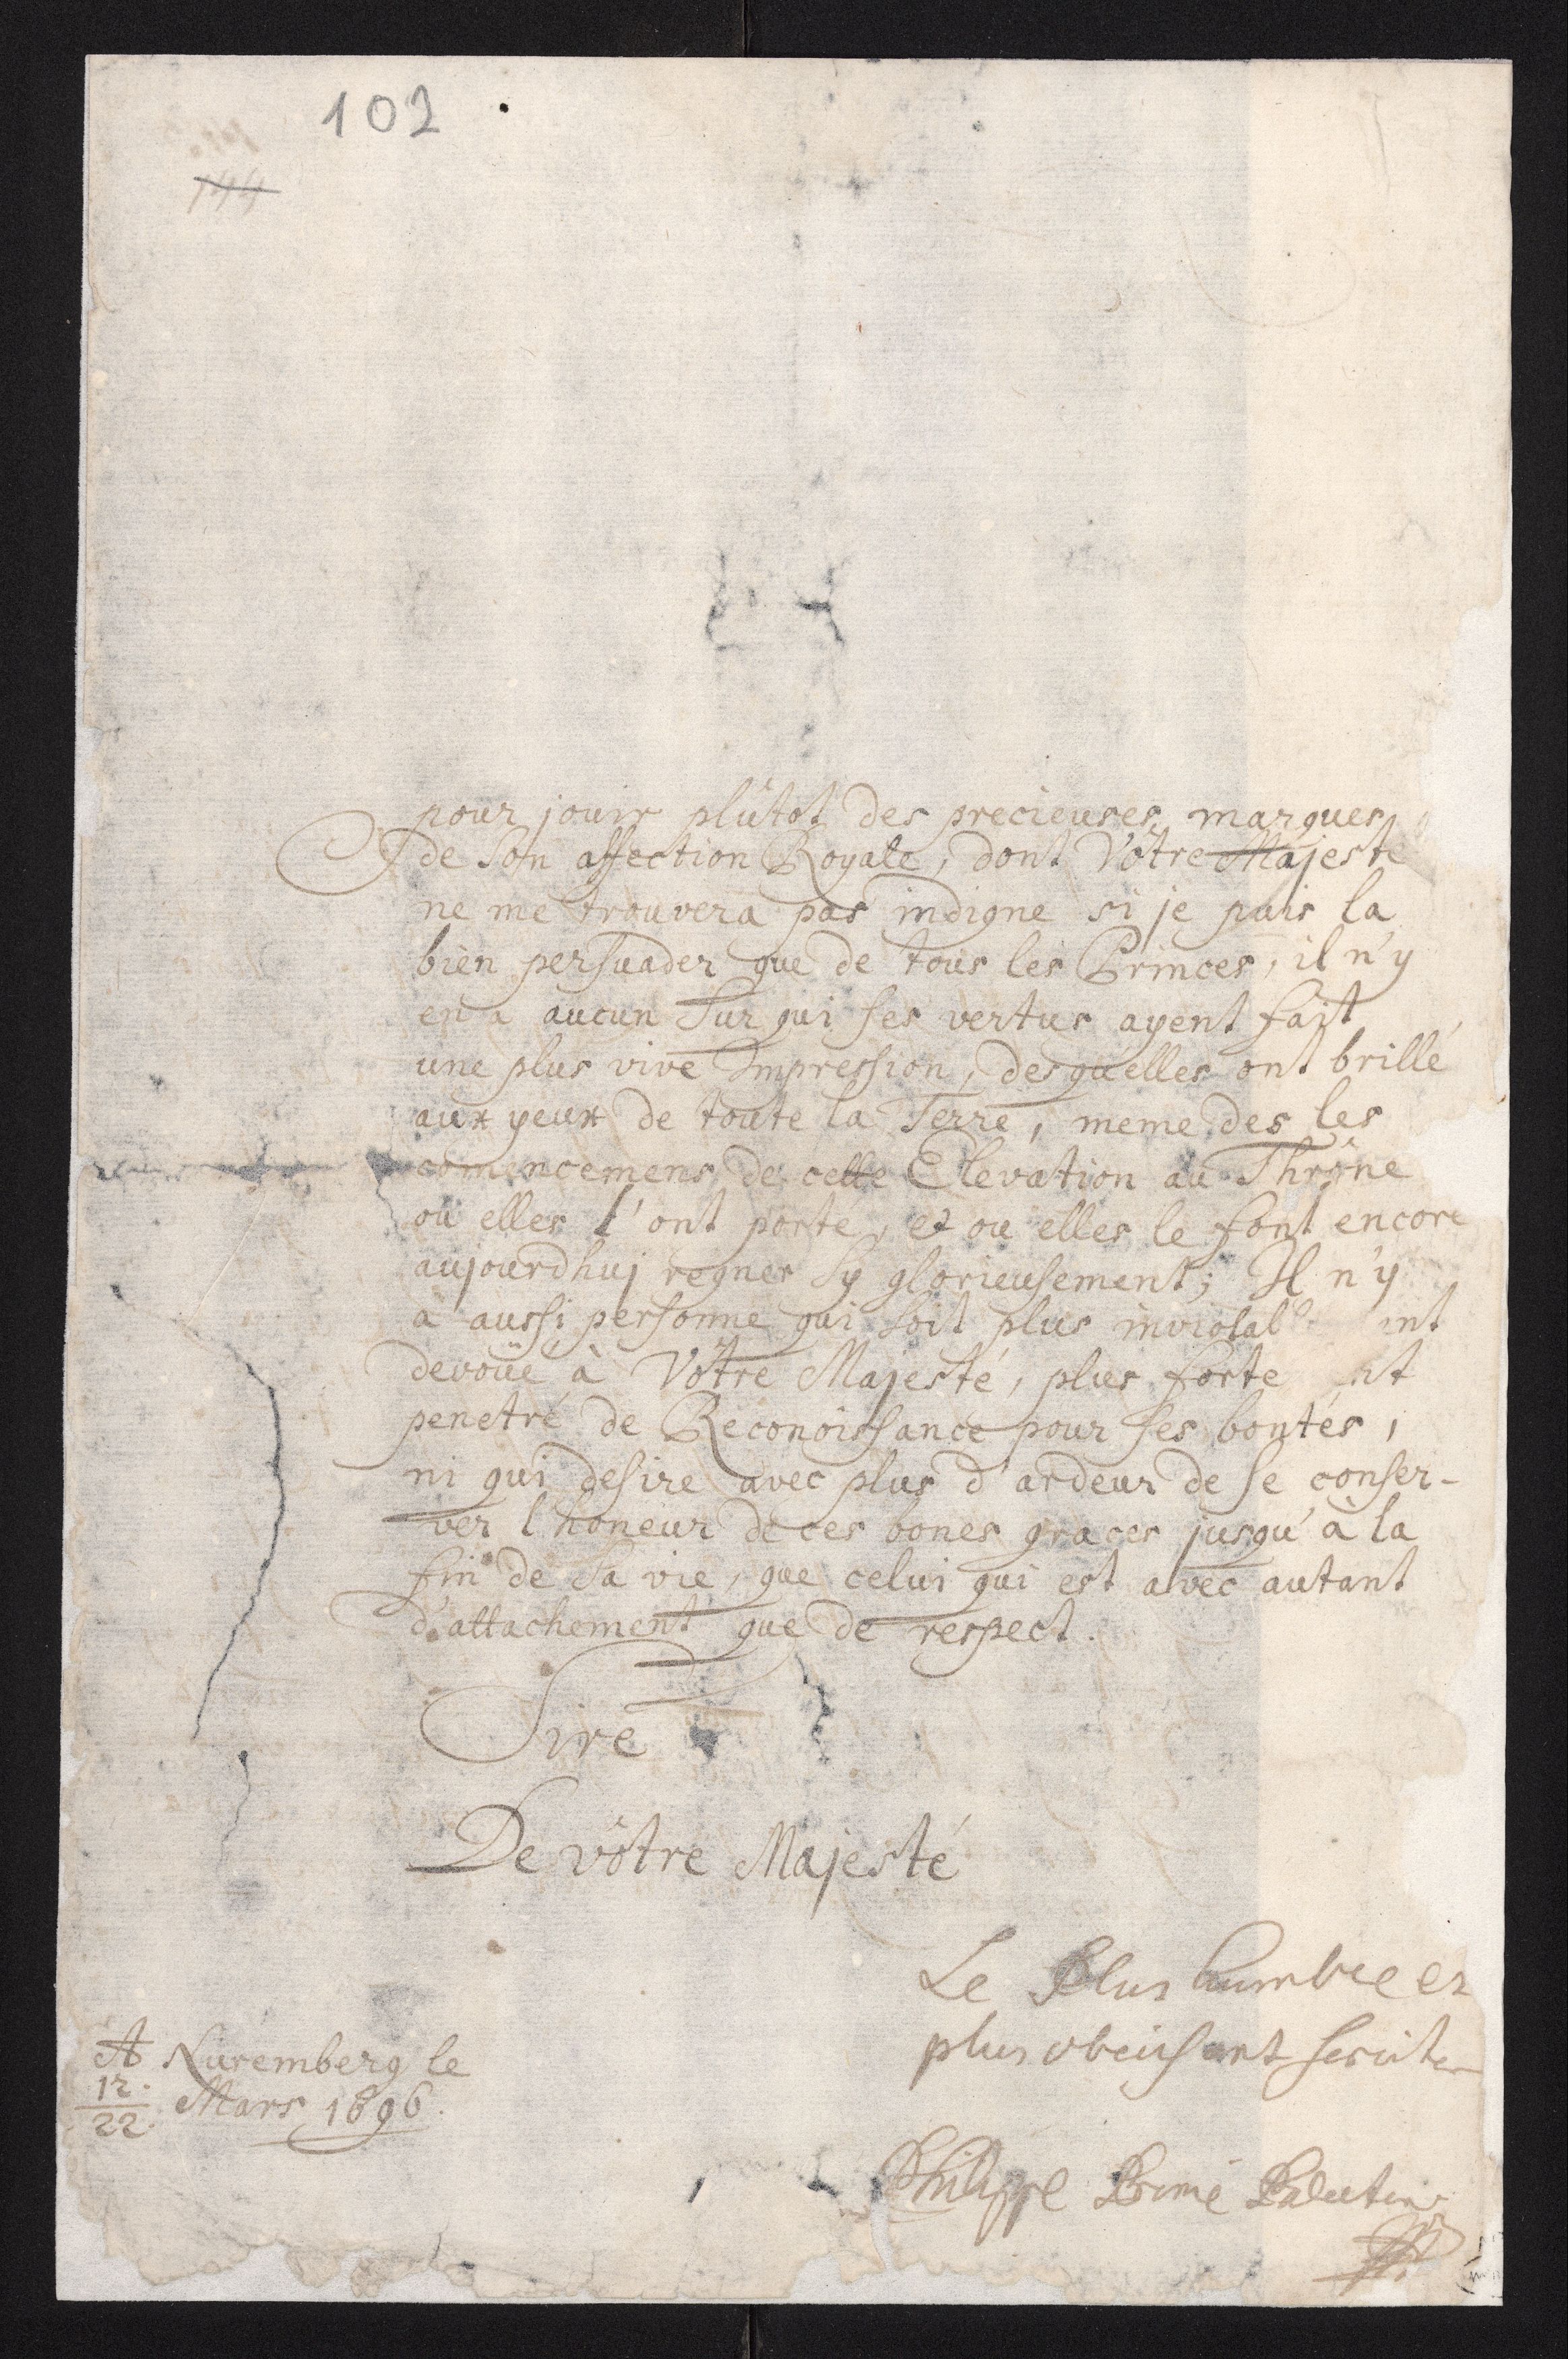 102
144
pour jouir plûtot des precieuses marques
de son affection Royale, dont Vôtre Majesté
ne me trouvera pas indigne si je puis la
bien persuader que de tous les Princes, il n'y
en a aucun sur qui ses vertus ayent fait
une plus vive Impression, desquelles ont brillé
aux yeux de toute la Terre, meme des les
comencemens de cette Elevation au Thrône
où elles l'ont porté, et ou elles le font encore
aujourdhuj regner sy glorieusement; Il n'y
a aussi personne qui soit plus inviolabl ent
devoüé à Vôtre Majesté, plus forte nt
penetré de Reconoissance pour ses bontés,
ni qui desire avec plus d'ardeur de se conser-
ver l'honeur de ces bones graces jusqu'à la
fin de sa vie, que celui qui est avec autant
d'attachement que de respect.
Sire
De vôtre Majesté
Le Plus humble et
plus obeissant serviteur
A Nuremberg le
12./22. Mars 1696.
Philippe Palatin